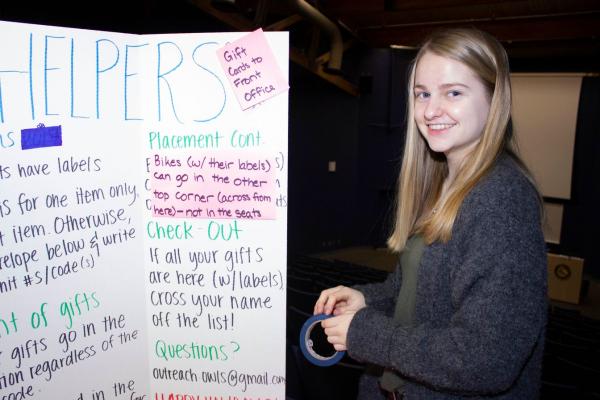 HELPERS
Gift
Cards to
Front
Office
ts have labels
is for one item only,
t item. Otherwise,
elope below & write
nit #s/code(s)
nt of gifts
gifts go in the
regardless of the
code.
in the
Placement Cont.
Bikes (w/their labels)
can go in the other
top corner (across from
here) - not in the seats
Check-Out
If all your gifts
are here (w/labels),
cross your name
off the list!
Questions?
outreach owls@gmail.com